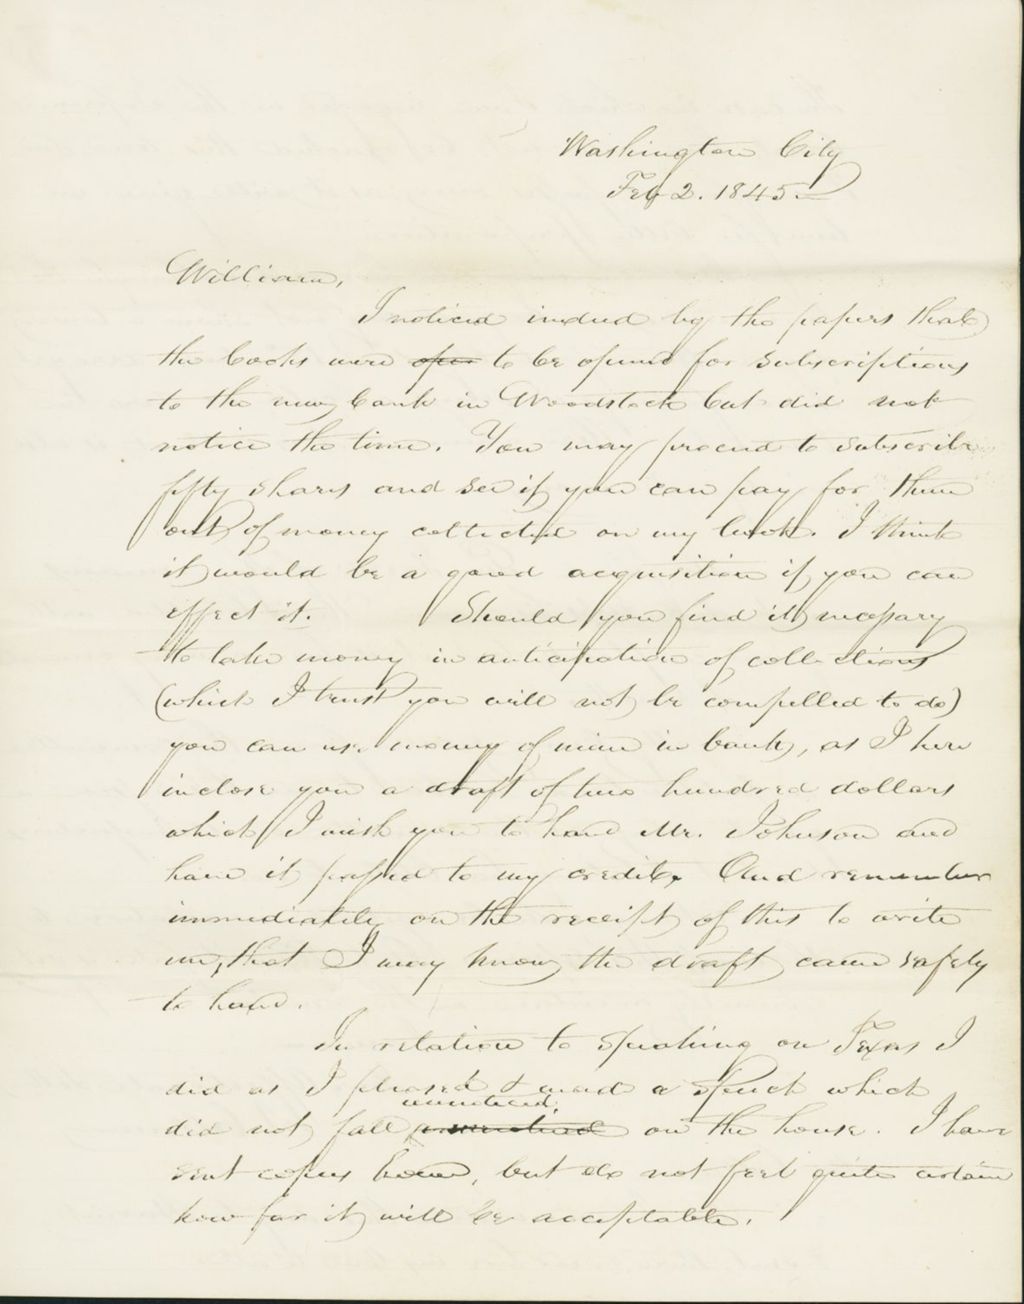 Washington City
Feb 2. 1845
William,
I noticed indeed by the papers that
the books were open to be opened for subscriptions
to the new bank in Woodstock but did not
notice the time. You may proceed to subscribe
fifty shares and see if you can pay for them
out of money collected on my book. I think
it would be a good acquisition if you can
effect it. Should you find it necessary
to take money in anticipation of collections
(which I trust you will not be compelled to do)
you can use money of mine in bank, as I here
inclose you a draft of two hundred dollars
which I wish you to hand Mr. Johnson and
have it passed to my credit. And remember
immediately on the receipt of this to write
me, that I may know the draft came safely
to hand.
In relation to speaking on Texas I
did as I pleased & made a speech which
unnoticed
did not fall on the house. I have
sent copies home, but do not feel quite certain
how far it will be acceptable.